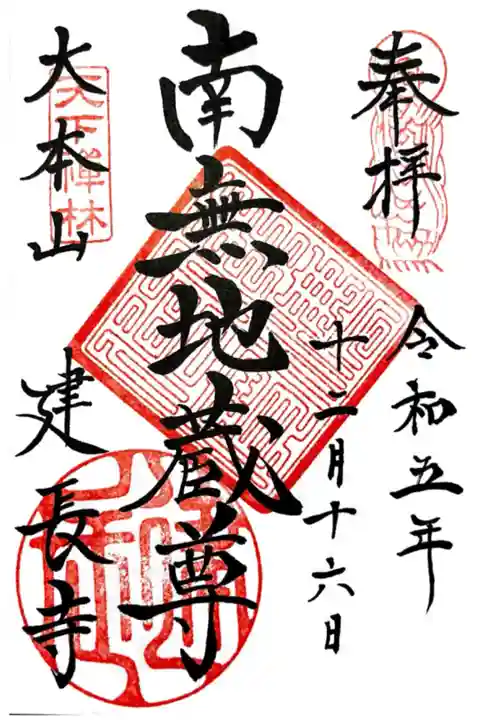 奉拝
令和五年
十二月十六日
南無地蔵尊
大本山
建長寺
天下禅林